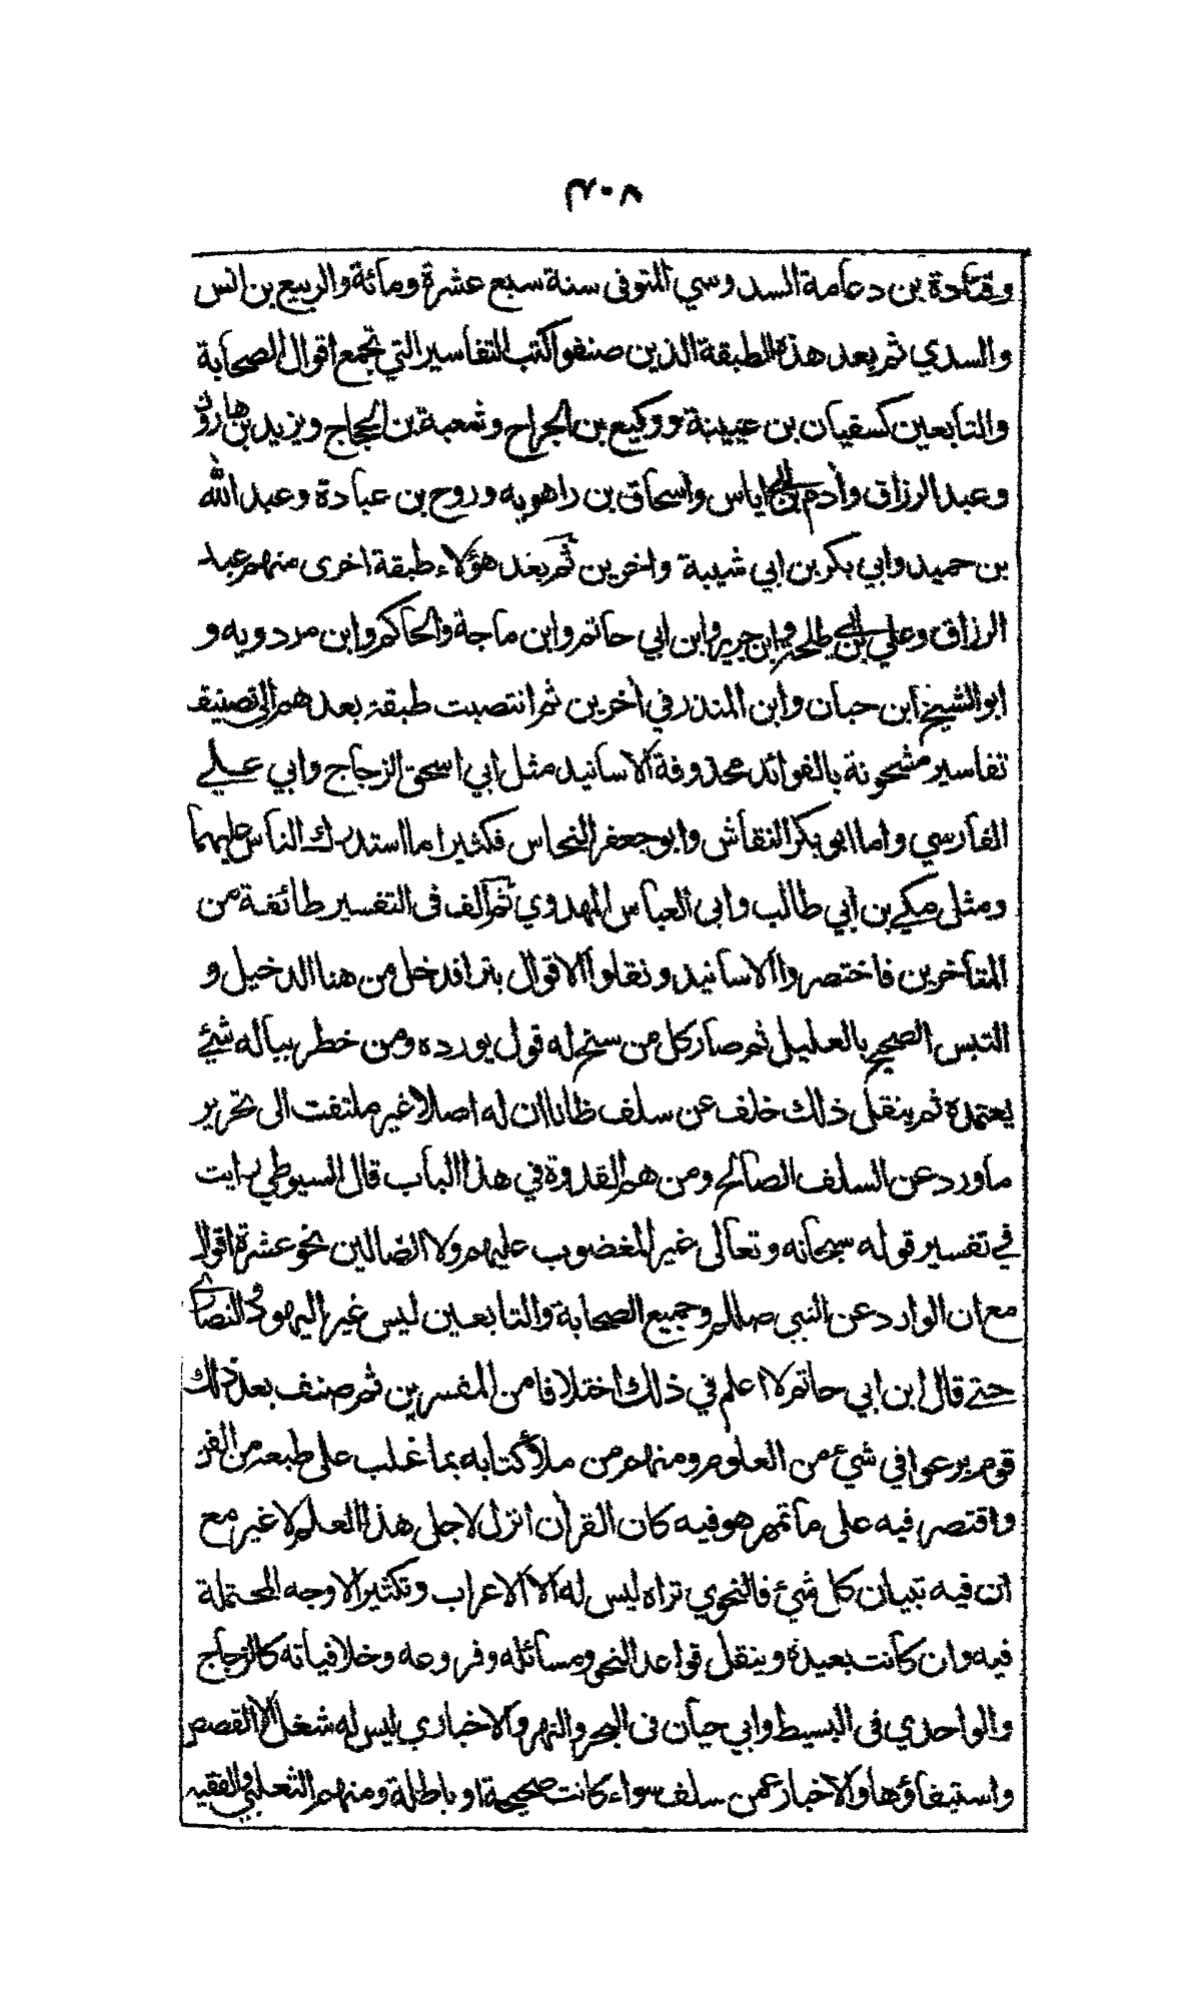 ٣٠٨
وقتادة بن دعامة السدوسي المتوفى سنة سبع عشرة ومائة والربيع بن انس
والسدي ثم بعد هذه الطبقة الذين صنفوا كتب التفاسير التي تجمع اقوال الصحابة
والتابعين كسفيان بن عيينة ووكيع بن الجراح وشعبة بن الحجاج ويزيد بن هارون
وعبد الرزاق وأدم بن ابي اياس واسحاق بن راهويه وروح بن عبادة وعبد الله
بن حميد وابي بكر بن ابي شيبة واخرين ثم بعد هؤلاء طبقة اخرى منهم عبد
الرزاق وعلي بن ابي طلحة وابن جرير وابن ابي حاتم وابن ماجة والحاكم وابن مردويه و
ابو الشيخ ابن حبان وابن المنذر في أخرين ثم انتصبت طبقة بعدهم الى تصنيف
تفاسير مشحونة بالفوائد محذوفة الاسانيد مثل ابي اسحق الزجاج وابي علي
الفارسي واما ابو بكر النقاش وابو جعفر النحاس فكثيرا ما استدرك الناس عليهما
ومثل مكي بن ابي طالب وابي العباس المهدوي ثم ألف في التفسير طائفة من
المتأخرين فاختصروا الاسانيد ونقلوا الاقوال بترا فدخل من هنا الدخيل و
التبس الصحيح بالعليل ثم صار كل من سنح له قول يورده ومن خطر بباله شئ
يعتمده ثم ينقل ذلك خلف عن سلف ظانا ان له اصلا غير ملتفت الى تحرير
ما ورد عن السلف الصالح ومن هم القدوة في هذا الباب قال السيوطي رايت
في تفسير قوله سبحانه وتعالى غير المغضوب عليهم ولا الضالين نحو عشرة اقوال
مع ان الوارد عن النبي صللم وجميع الصحابة والتابعين ليس غير اليهود والنصارى
حتى قال ابن ابي حاتم لا اعلم في ذلك اختلافا من المفسرين ثم صنف بعد ذلك
قوم برعوا في شيء من العلوم ومنهم من ملأ كتابه بما غلب على طبعه من الفن
واقتصر فيه على ما تمهر هو فيه كان القرأن انزل لاجل هذا العلم لا غير مع
ان فيه تبيان كل شيء فالنحوي تراه ليس له الا الاعراب وتكثير الاوجه المحتملة
فيه وان كانت بعيدة وينقل قواعد النحو ومسائله وفروعه وخلافياته كالزجاج
والواحدي في البسيط وابي حيان في البحر والنهر والاخباري ليس له شغل الا القصص
واستيفاؤها والاخبار عمن سلف سواء كانت صحيحة او باطلة ومنهم الثعلبي والفقيه